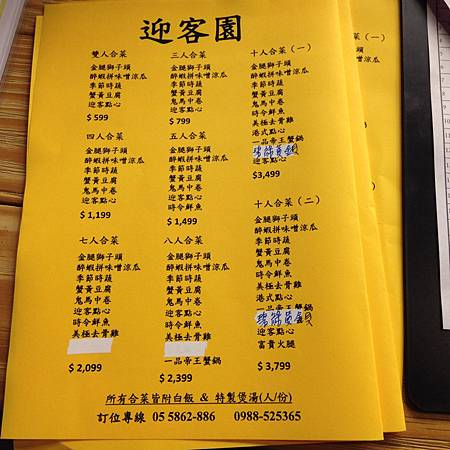 迎客園
雙人合菜
金腿獅子頭
醉蝦拼味噌涼瓜
季節時蔬
蟹黃豆腐
迎客點心
$ 599
三人合菜
金腿獅子頭
醉蝦拼味噌涼瓜
季節時蔬
蟹黃豆腐
鬼馬中卷
迎客點心
$ 799
十人合菜（一）
金腿獅子頭
醉蝦拼味噌涼瓜
季節時蔬
蟹黃豆腐
鬼馬中卷
時令鮮魚
美極去骨雞
港式點心
一品帝王蟹鍋
迎客點心
$3,499
四人合菜
金腿獅子頭
醉蝦拼味噌涼瓜
季節時蔬
蟹黃豆腐
鬼馬中卷
迎客點心
時令鮮魚
$ 1,199
五人合菜
金腿獅子頭
醉蝦拼味噌涼瓜
季節時蔬
蟹黃豆腐
鬼馬中卷
迎客點心
時令鮮魚
$ 1,499
十人合菜（二）
金腿獅子頭
醉蝦拼味噌涼瓜
季節時蔬
蟹黃豆腐
鬼馬中卷
時令鮮魚
美極去骨雞
港式點心
一品帝王蟹鍋
迎客點心
富貴火腿
$ 3,799
七人合菜
金腿獅子頭
醉蝦拼味噌涼瓜
季節時蔬
蟹黃豆腐
鬼馬中卷
迎客點心
時令鮮魚
美極去骨雞
$ 2,099
八人合菜
金腿獅子頭
醉蝦拼味噌涼瓜
季節時蔬
蟹黃豆腐
鬼馬中卷
迎客點心
時令鮮魚
美極去骨雞
一品帝王蟹鍋
$ 2,399
所有合菜皆附白飯 & 特製煲湯(人/份)
訂位專線 05 5862-886 0988-525365
（一）
（二）